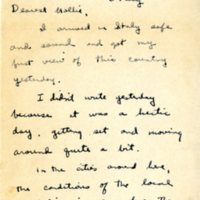 Dearest Hollis,
I arrived in Italy safe
and sound and got my
first view of this country
yesterday.
I didn't write yesterday
because it was a hectic
day, getting set and moving
around quite a bit.
In the cities around here,
the conditions of the local